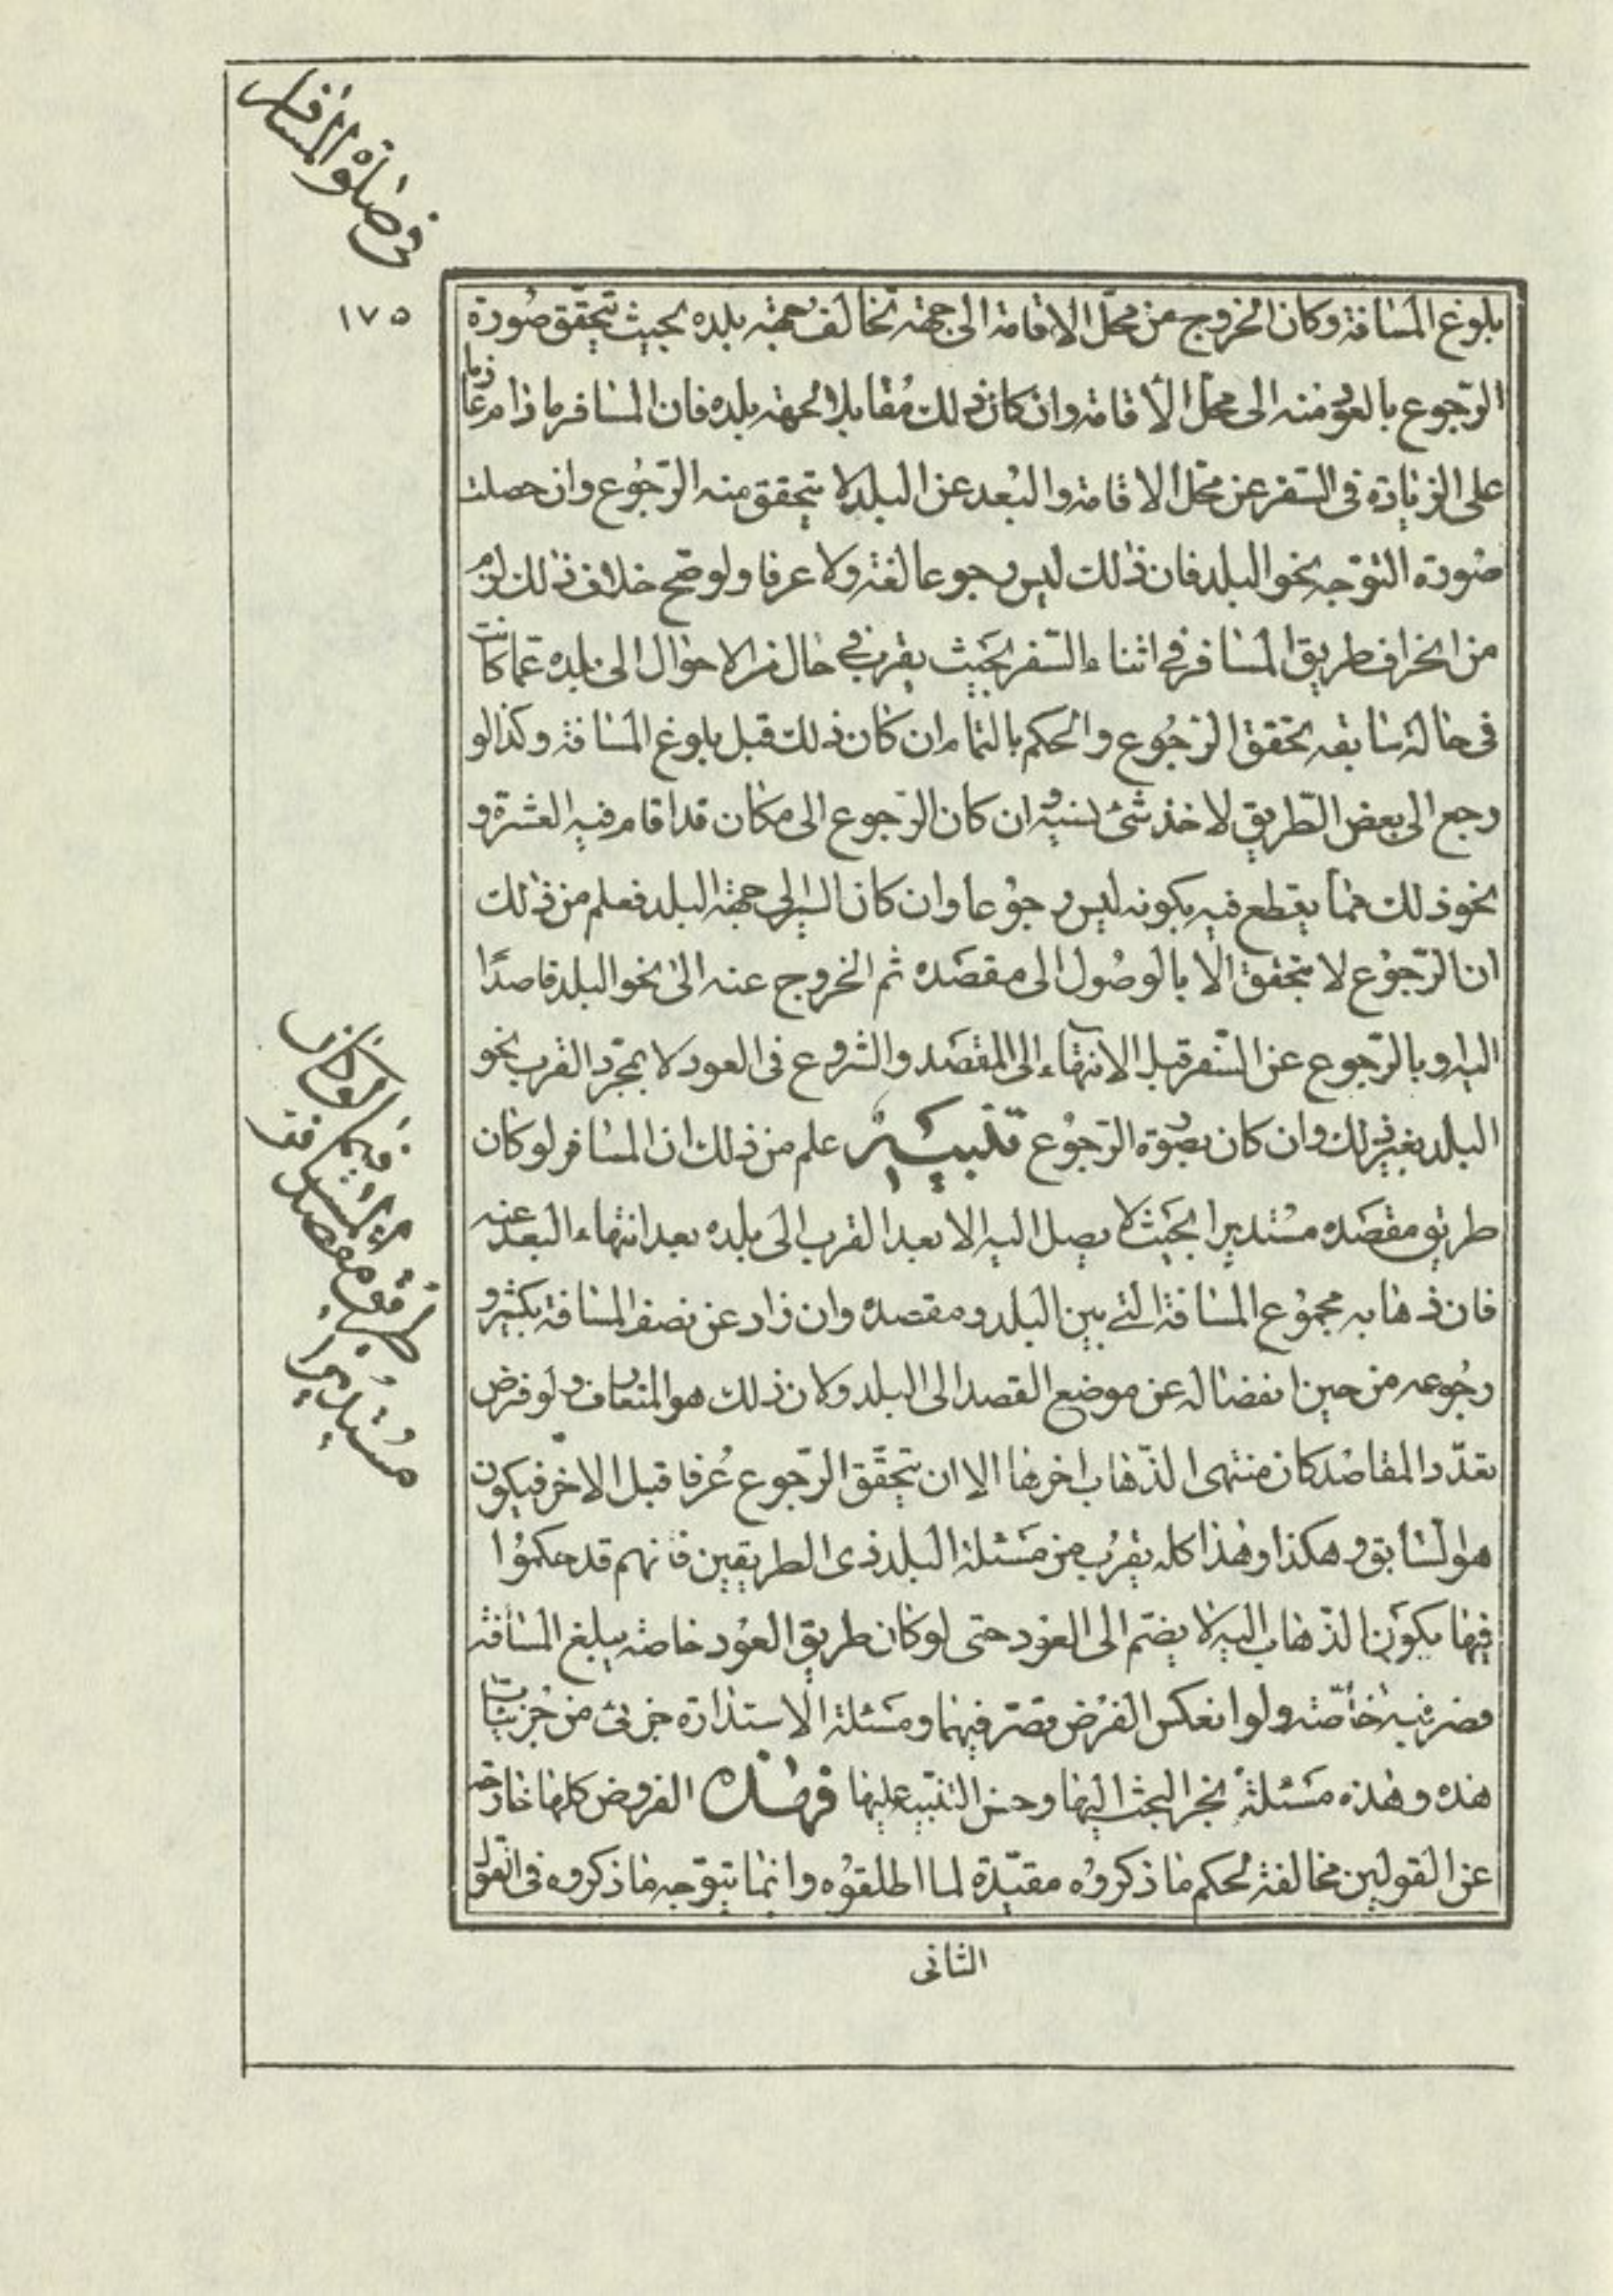 في صلوة المسافر
١٧٥
بلوغ المسافة وكان الخروج عن محلّ الاقامة الى جهة تخالف جهة بلده بحيث تحقّق صورة
الرّجوع بالعود منه الى محلّ الاقامة وان كان ذلك مقابلا لجهة بلده فان المسافر ما دام عازما
على الزيادة فى السّفر عن محلّ الاقامة والبُعد عن البلد لا يتحقق منه الرّجُوع وان حصلت
صُورة التوّجه نحو البلد فان ذلك ليس رجوعا لغة ولا عرفا ولو صحّ خلاف ذلك لزم
من انحراف طريق المسافر فى اثناء السّفر بحيث يقرب في حال من الاحوال الى بلده عمّا كانت
فى حالة سابقه تحقق الرّجُوع والحكم بالتمام ان كان ذلك قبل بلوغ المسافة وكذا لو
رجع الى بعض الطّريق لاخذ شئ نسيه وان كان الرّجوع الى مكان قد اقام فيه العشرة و
نحو ذلك ممّا يقطع فيه بكونه ليس رجُوعا وان كان السّير الى جهة البلد فعلم من ذلك
ان الرّجُوع لا يتحقق الّا بالوصُول الى مقصَده ثم الخروج عنه الى نحو البلد قاصدًا
اليه او بالرّجوع عن السّفر قبل الانتهاء الى المقصَد والشروع فى العود لا بمجّرد القرب نحو
البلد بغير ذلك وان كان بصُورة الرّجُوع تنبيه علم من ذلك ان المسافر لو كان
طريق مقصَده مسُتديرا بحيَث لا يصل اليه الا بعد القرب الى بلده بعد انتهاء البعد عنه
فان ذهابه مجمُوع المسافة التي بين البلد ومقصده وان زاد عن نصف المسافة بكثير و
رجُوعه من حين انفصاله عن موضع القصد الى البلد ولان ذلك هو المتعارف ولو فرض
تعدّد المقاصد كان منتهى الذّهاب اخرها الا ان يتحقّق الرّجوع عُرفا قبل الاخر فيكون
هو السّابق وهكذا وهذا كله يقرُب من مَسْئلة البلد ذى الطريقين فانهم قد حكموُا
فيها بكون الذّهاب اليه لا يضّم الى العَود حتى لو كان طريق العوُد خاصّه يبلغ المسافة
قصر فيه خاصّة ولو انعكس الفرض قصّر فيهما ومَسئلة الاستدارة جزئى من جُزئيّات
هذه وهذه مَسْئلة انجر البحث اليها وحسن التنبّيه عليها فهذه الفروض كلها خارجه
عن القولين مخالفة لحكم ما ذكروُه مقيّدة لما اطلقوُه وانما يتوّجه ما ذكروه فى القول
الثانى
فيما لو كان
المسافر
طريق مقصده
مسُتديرا